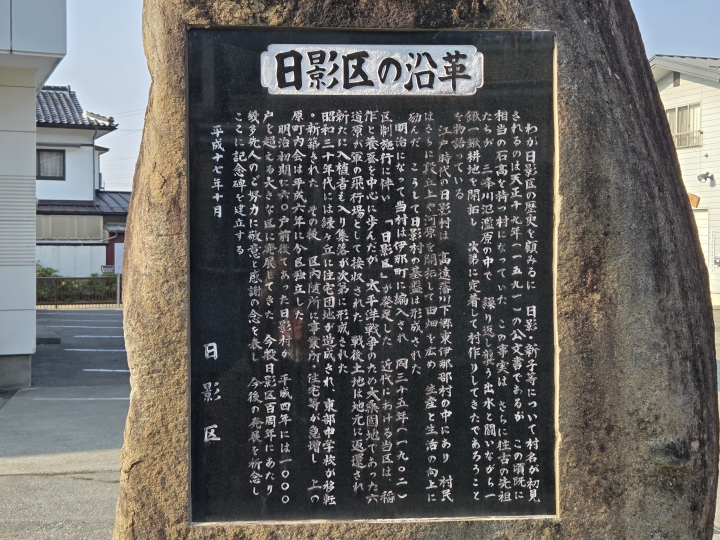 日影区の沿革
わが日影区の歴史を顧みるに 日影・新子等について村名が初見
されるのは天正十九年(一五九一)の公文書であるが この頃既に
相当の石高を持つ村になっていた この事実は さらに往古の先祖
たちが 三峰川氾濫原の中で 繰り返し襲う出水と闘いながら一
鍬一鍬耕地を開拓し 次第に定着して村作りしてきたであろうこと
を物語っている
江戸時代の日影村は 高遠藩川下郷東伊那部村の中にあり 村民
はさらに段丘上や河原を開拓して田畑を広め 生産と生活の向上に
励んだ こうして日影村の基盤は形成された
明治になって当村は伊那町に編入され 同三十五年(一九〇二)
区制施行に伴い 「日影区」が発足した 近代における当区は、稲
作と養蚕を中心に歩んだが 太平洋戦争のため大桑園地であった六
道原が軍の飛行場として接収された 戦後土地は地元に返還され
新たに入植者も入り集落が次第に形成された
昭和三十年代には緑ヶ丘に住宅団地が造成され、東部中学校が移転
・新築された その後 区内随所に事業所・住宅等が急増し 上の
原町内会は平成八年に今区独立した
明治初期に六〇戸前後であった日影村が 平成四年には一〇〇〇
戸を超える大きな区に発展してきた 今般日影区百周年にあたり
幾多先人のご努力に敬意と感謝の念を表し 今後の発展を祈念し
ここに記念碑を建立する
平成十七年十月
日影区